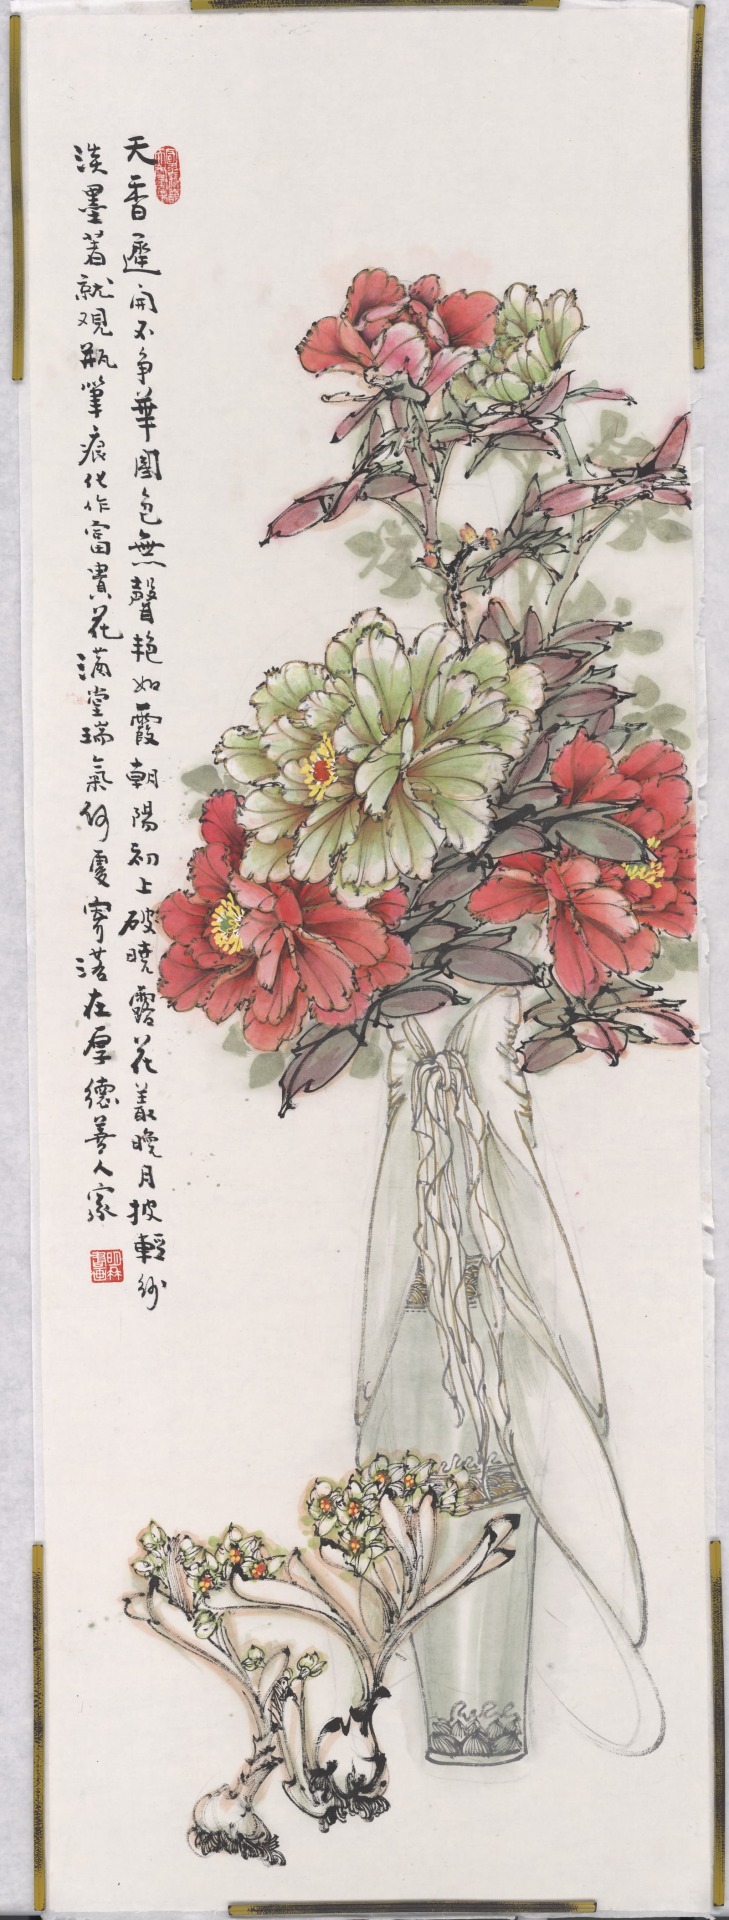 天香遲開不争華國色無聲艳如霞朝陽初上破曉露花羞晚月披輕紗
淡墨著就观瓶筆痕化作富貴花滿堂瑞氣何處寄落在厚德善人家